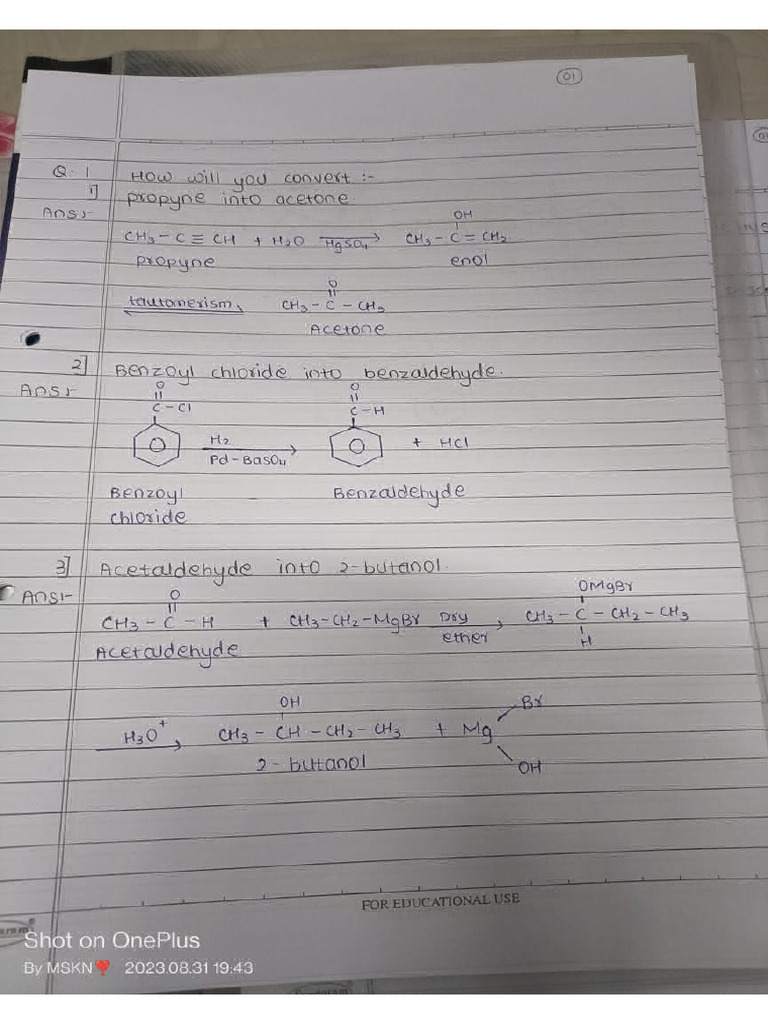 01
Q.1 How will you convert :-
1] propyne into acetone.
Ans:- OH
CH₃ – C ≡ CH + H₂O HgSO₄ → CH₃ – C = CH₂
propyne enol
tautomerism, O
CH₃ – C – CH₃
Acetone
2] Benzoyl chloride into benzaldehyde.
Ans:- O O
C – Cl C – H
H₂
Pd – BaSO₄ → + HCl
Benzoyl Benzaldehyde
chloride
3] Acetaldehyde into 2-butanol.
Ans:- O OMgBr
CH₃ – C – H + CH₃ – CH₂ – MgBr Dry ether → CH₃ – C – CH₂ – CH₃
Acetaldehyde H
OH Br
H₃O⁺ → CH₃ – CH – CH₂ – CH₃ + Mg
2-butanol OH
FOR EDUCATIONAL USE
Shot on OnePlus
By MSKN❣️ 2023.08.31 19:43